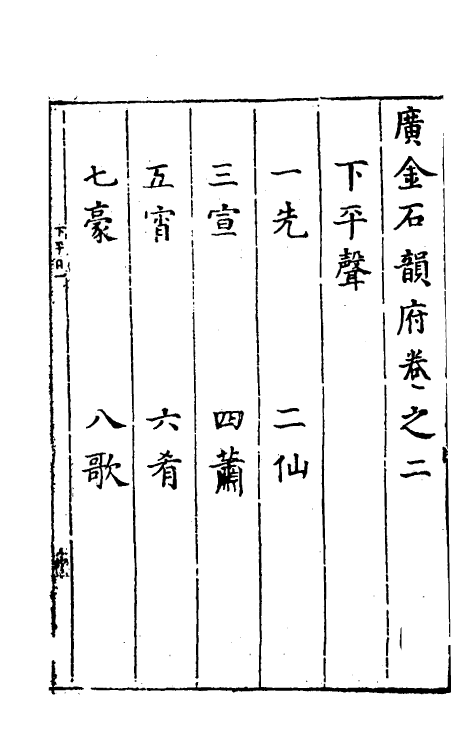 廣金石韻府卷之二
下平聲
一先 二仙
三宣 四蕭
五宵 六肴
七豪 八歌